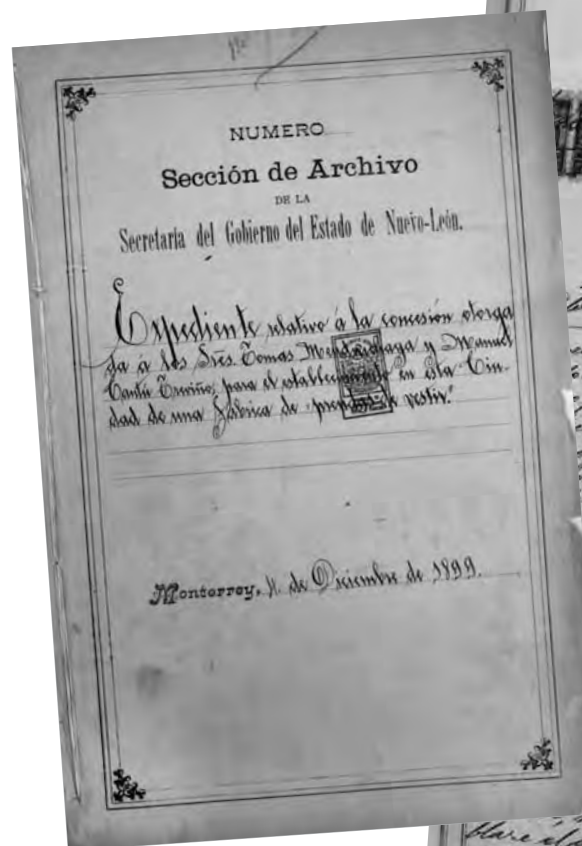 NUMERO
Sección de Archivo
DE LA
Secretaría del Gobierno del Estado de Nuevo-León.
Expediente relativo á la concesión otorga
da á los Sres. Tomas Mendirichaga y Manuel
Cantú Treviño, para el establecimiento en esta Ciu-
dad de una fábrica de prendas de vestir.
Monterrey, de Diciembre de 1899.